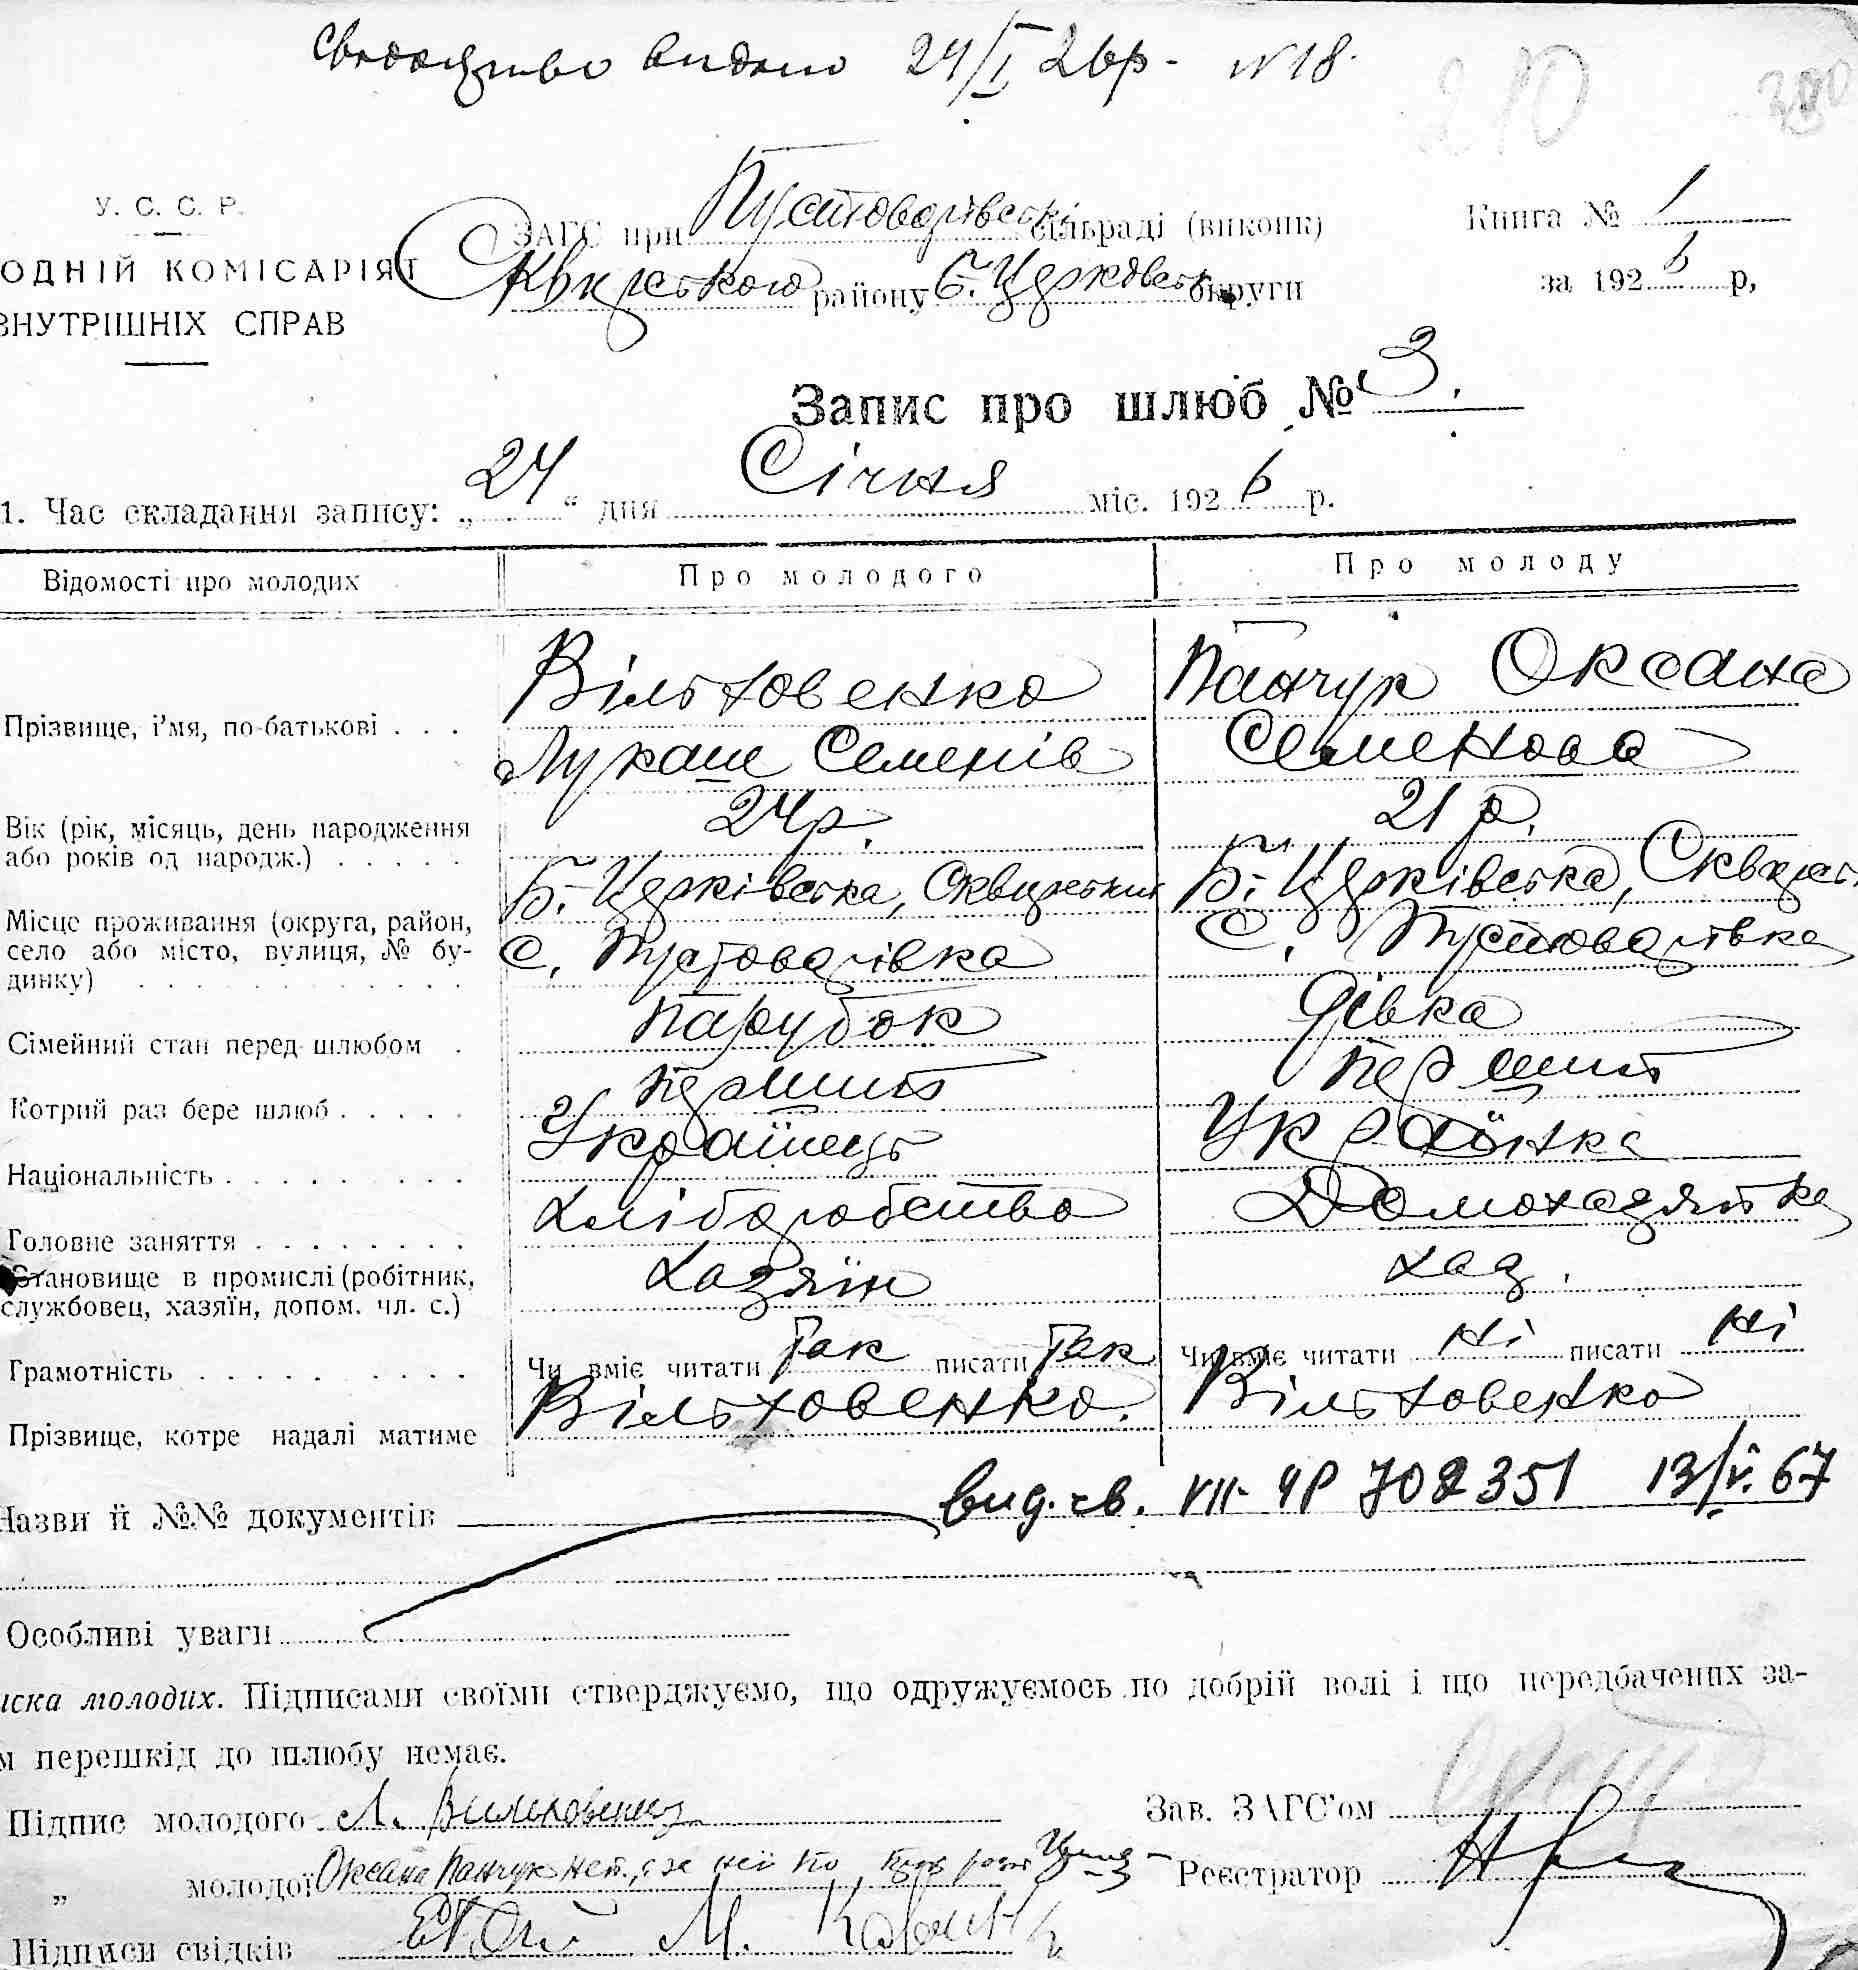 Свідоцтво видано 24/I 26р- №18.
210
У. С. С. Р.
ЗАГС при Пустоварівській сільраді (виконк) Книга № 1
ОДНІЙ КОМІСАРІЯТ Сквирського району Б. Церковськ округи за 1926 р,
ВНУТРІШНІХ СПРАВ
Запис про шлюб № 3.
1. Час складання запису: „24“ дня Січня міс. 1926 р.
Відомості про молодих Про молодого Про молоду
Вільховенко Панчук Оксана
Прізвище, і'мя, по-батькові . . . Лукаш Семенів Семенова
Вік (рік, місяць, день народження 24р. 21 р.
або років од народж.) . . . . .
Місце проживання (округа, район, Б.-Церківська, Сквирський Б.-Церківська, Сквирськ.
село або місто, вулиця, № бу- с. Пустоварівка С. Пустоварівка
динку) . . . . . . . . . . .
Сімейний стан перед шлюбом . Парубок Дівка
Котрий раз бере шлюб . . . . . перший перший
Національність . . . . . . . . . Українець Українка
Головне заняття . . . . . . . . Хліборобство Домохазяйка
Становище в промислі (робітник, Хазяїн хаз.
службовец, хазяїн, допом. чл. с.)
Грамотність . . . . . . . . . . Чи вміє читати Так писати Так Чи вміє читати Ні писати Ні
Прізвище, котре надалі матиме Вільховенко. Вільховенко
Назви й №№ документів вид. св. VII-ЧР 702351 13/V. 67
Особливі уваги
иска молодих. Підписами своїми стверджуємо, що одружуємось по добрій волі і що передбачених за-
м перешкід до шлюбу немає.
Підпис молодого Л. Вильховенко Зав. ЗАГС'ом
„ молодої Оксана Панчук неп., за неї по Реєстратор
Підписи свідків М.